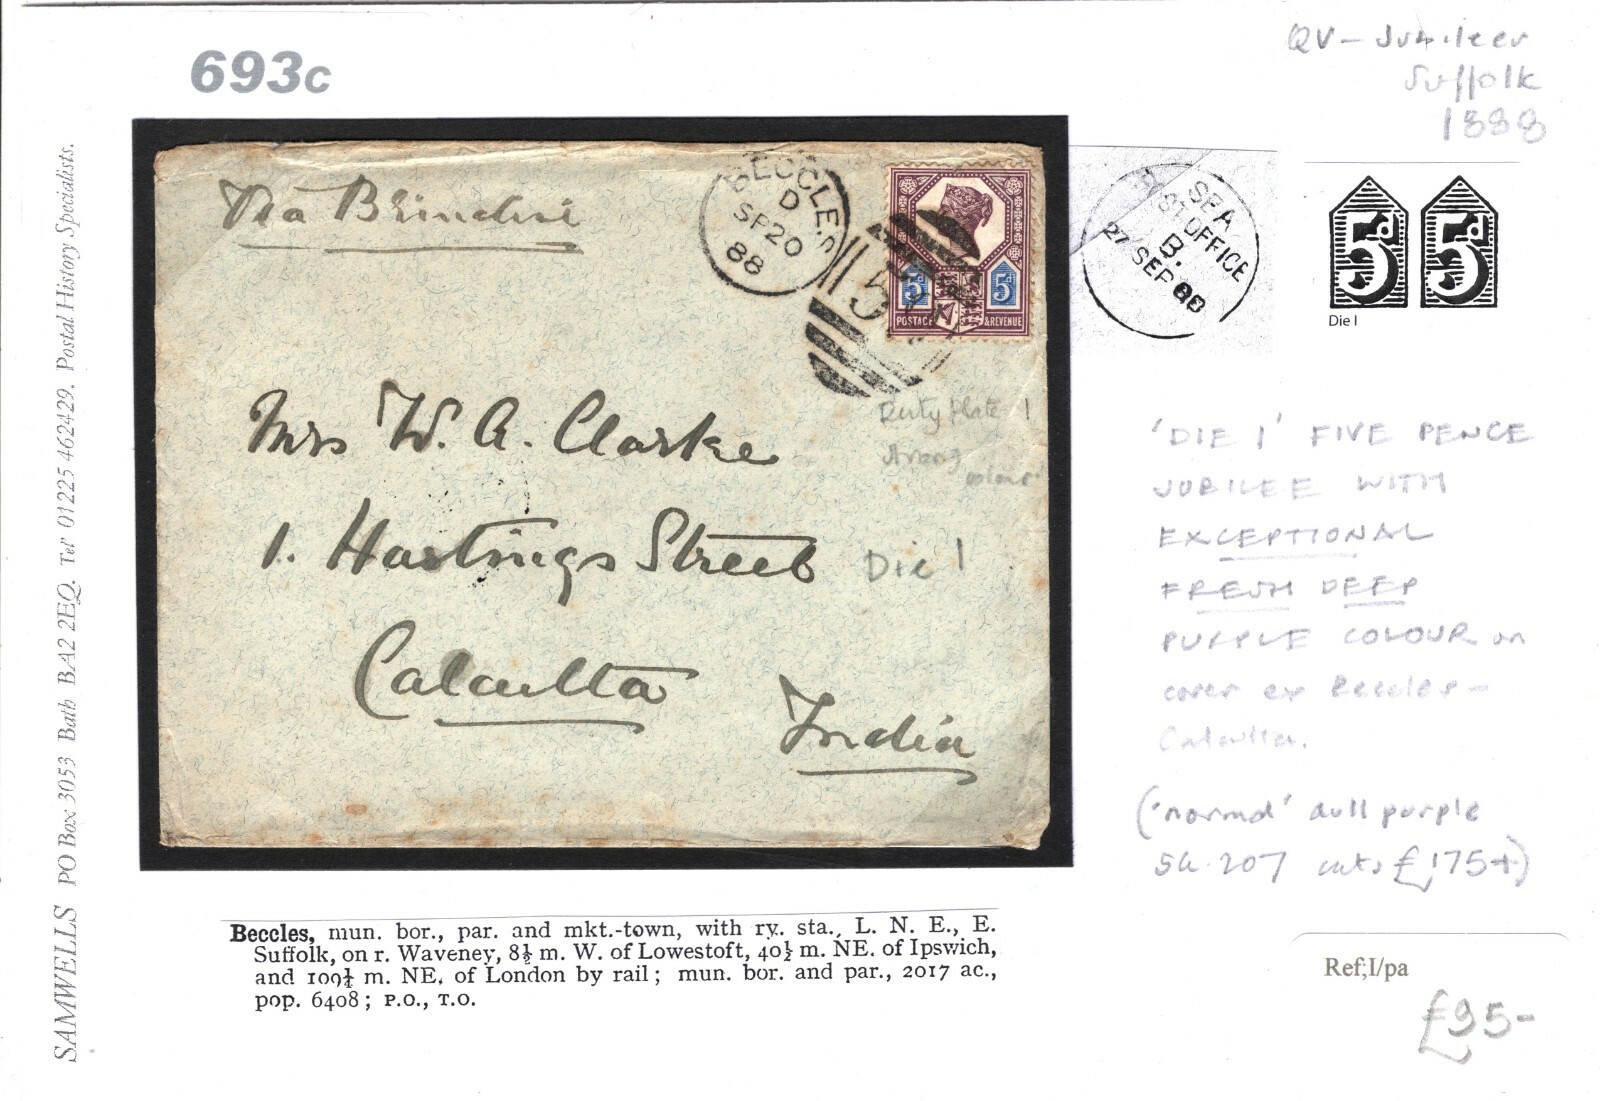 693c
QV - Jubilee
Suffolk
1888
SAMWELLS PO Box 3053 Bath BA2 2EQ. Tel' 01225 462429. Postal History Specialists.
Via Brindisi
BECCLES
D
SP 20
88
5d 5d
POSTAGE & REVENUE
SEA
ST. OFFICE
B.
27 SEP 88
5d 5d
Die I
Mrs W. A. Clarke
1. Hastings Street
Calcutta
India
Duty plate 1
Strong
colour
Die 1
'DIE 1' FIVE PENCE
JUBILEE WITH
EXCEPTIONAL
FRESH DEEP
PURPLE COLOUR on
cover ex Beccles -
Calcutta.
('normal' dull purple
SG. 207 cats £175+)
Beccles, mun. bor., par. and mkt.-town, with ry. sta., L. N. E., E.
Suffolk, on r. Waveney, 8½ m. W. of Lowestoft, 40½ m. NE. of Ipswich,
and 109¼ m. NE. of London by rail; mun. bor. and par., 2017 ac.,
pop. 6408; P.O., T.O.
Ref;I/pa
£95-